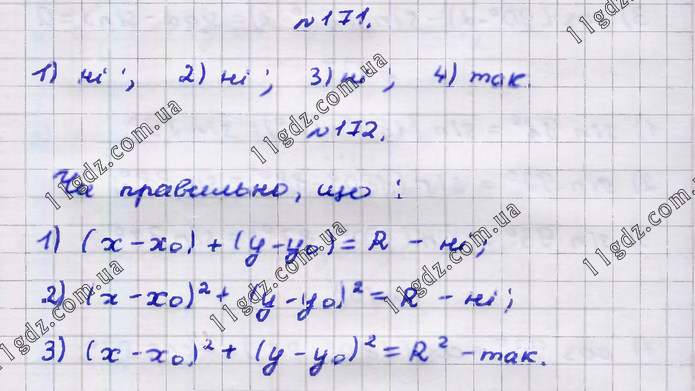 №171.
1) ні; 2) ні; 3) ні; 4) так.
№172.
Чи правильно, що:
1) (x-x₀)+(y-y₀)=R - ні;
2) (x-x₀)²+(y-y₀)²=R - ні;
3) (x-x₀)²+(y-y₀)²=R² - так.
11gdz.com.ua
11gdz.com.ua
11gdz.com.ua
11gdz.com.ua
11gdz.com.ua
11gdz.com.ua
11gdz.com.ua